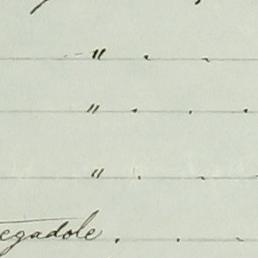 " . .
" . . .
" . . .
egadole . . .